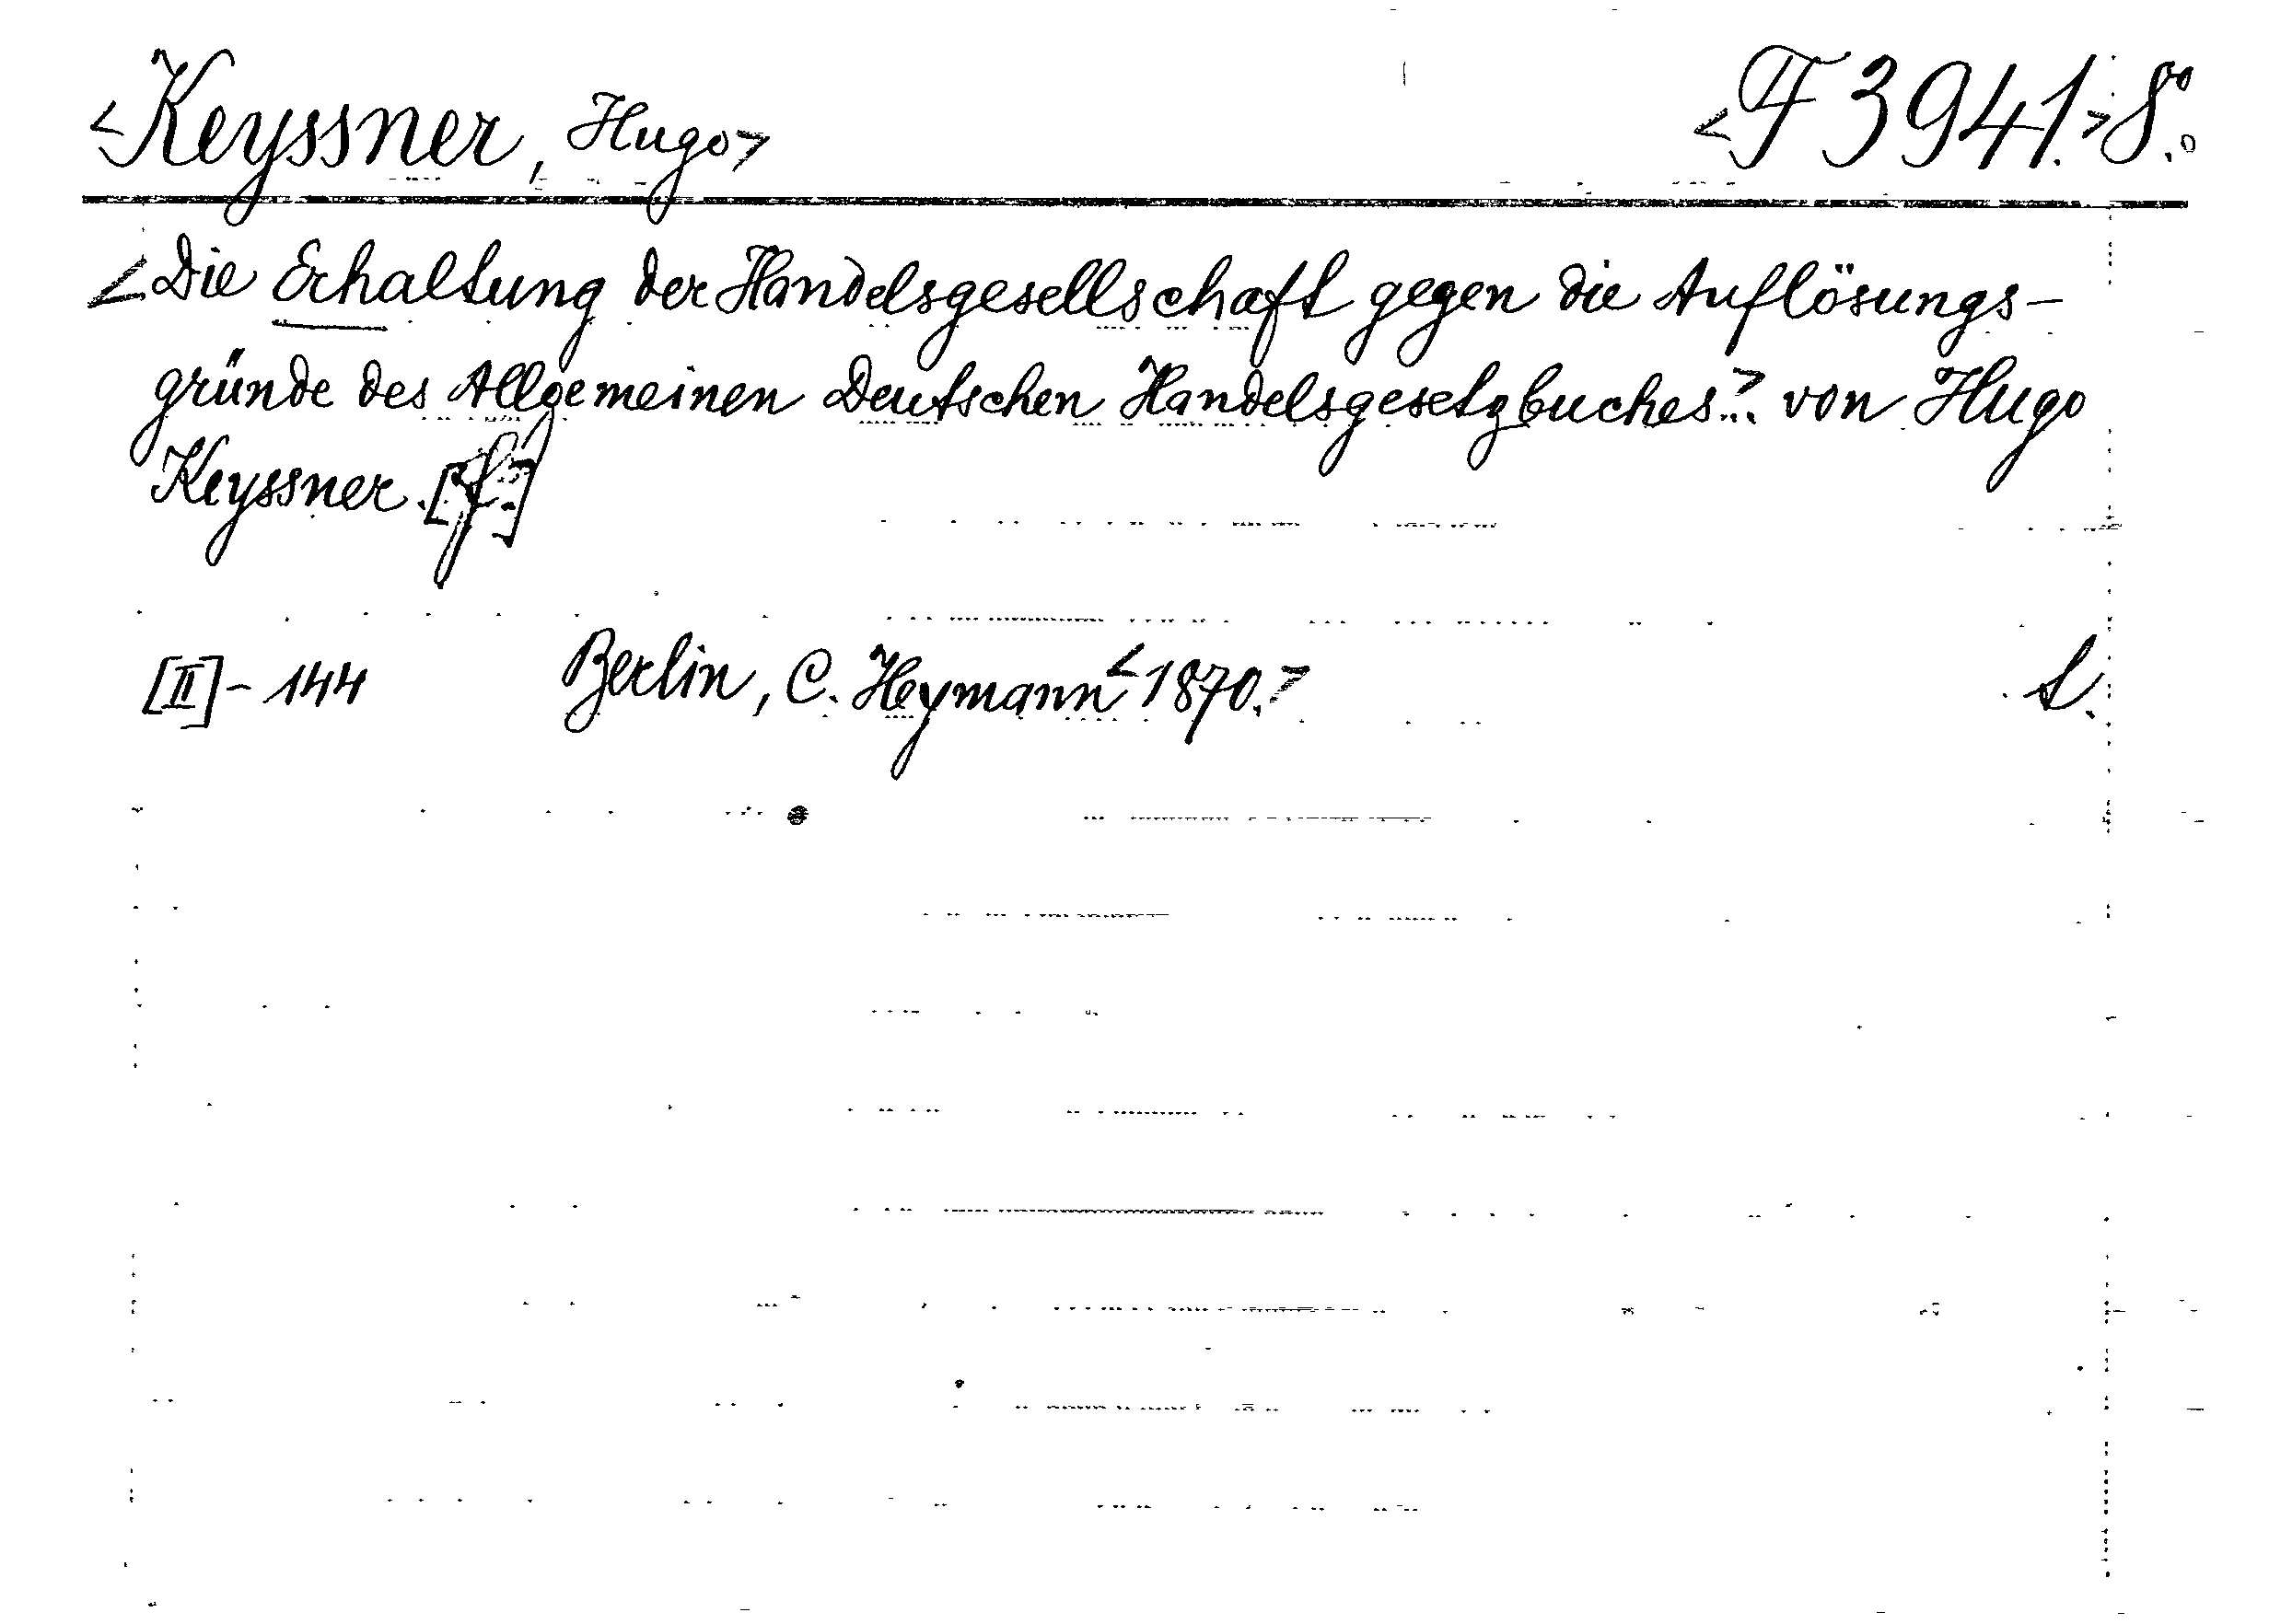 <Keyssner, Hugo> <F 3941.> 8.º
<Die Erhaltung der Handelsgesellschaft gegen die Auflösungs-
gründe des Allgemeinen Deutschen Handelsgesetzbuches.> von Hugo
Keyssner.
[II] - 144 Berlin, C. Heymann <1870.>